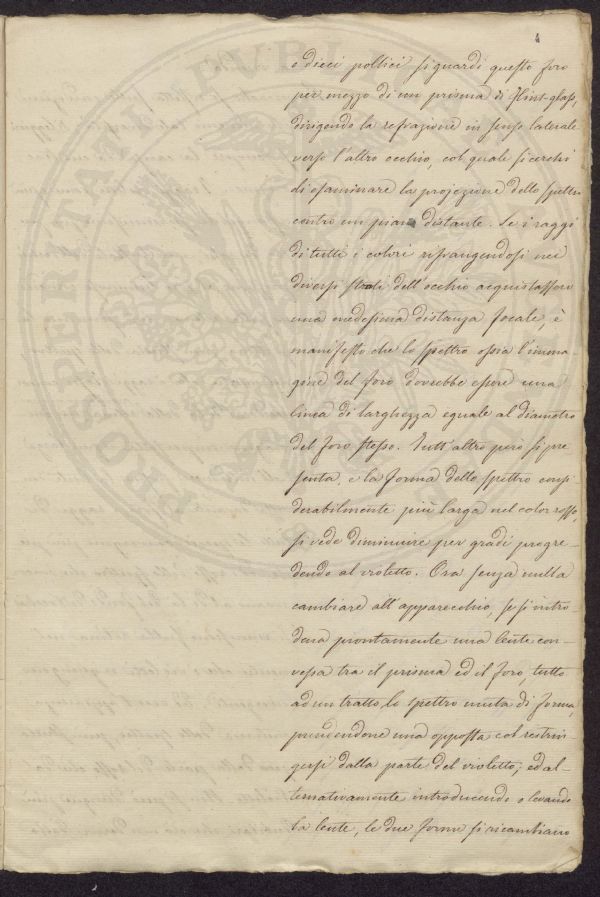 4
o dieci pollici si guardi questo foro
per mezzo di un prisma di Flint-glass,
dirigendo la refrazione in senso laterale
verso l'altro occhio, col quale si cerchi
di esaminare la projezione dello spettro
contro un piano distante. Se i raggi
di tutti i colori rifrangendosi nei
diversi strati dell'occhio acquistassero
una medesima distanza focale, è
manifesto che lo spettro ossia l'imma-
gine del foro dovrebbe essere una
linea di larghezza eguale al diametro
del foro stesso. Tutt'altro però si pre
senta, e la forma dello spettro consi
derabilmente più larga nel color rosso,
si vede diminuire per gradi progre-
dendo al violetto. Ora senza nulla
cambiare all'apparecchio, se si intro-
durrà prontamente una lente con-
vessa tra il prisma ed il foro, tutto
ad un tratto lo spettro muta di forma,
prendendone una opposta col restrin-
gersi dalla parte del violetto; ed al-
ternativamente introducendo o levando
la lente, le due forme si ricambiano
PROSPERITATI PVBLI